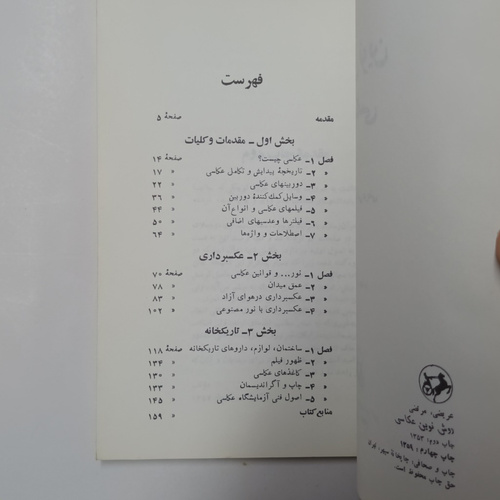 فهرست
مقدمه صفحهٔ ۵
بخش اول ـ مقدمات و کلیات
فصل ۱ـ عکاسی چیست؟ صفحهٔ ۱۴
» ۲ـ تاریخچهٔ پیدایش و تکامل عکاسی » ۱۷
» ۳ـ دوربینهای عکاسی » ۲۲
» ۴ـ وسایل کمک کنندهٔ دوربین » ۳۶
» ۵ـ فیلمهای عکاسی و انواع آن » ۴۴
» ۶ـ فیلترها وعدسیهای اضافی » ۵۰
» ۷ـ اصطلاحات و واژهها » ۶۴
بخش ۲ـ عکسبرداری
فصل ۱ـ نور... و قوانین عکاسی صفحهٔ ۷۰
» ۲ـ عمق میدان » ۷۸
» ۳ـ عکسبرداری درهوای آزاد » ۸۳
» ۴ـ عکسبرداری با نور مصنوعی » ۱۰۲
بخش ۳ـ تاریکخانه
فصل ۱ـ ساختمان، لوازم، داروهای تاریکخانه صفحهٔ ۱۱۸
» ۲ـ ظهور فیلم » ۱۲۴
» ۳ـ کاغذهای عکاسی » ۱۳۰
» ۴ـ چاپ و آگراندیسمان » ۱۳۳
» ۵ـ اصول فنی آزمایشگاه عکاسی » ۱۴۵
منابع کتاب » ۱۵۹
عریضی، مرتضی
روش نوین عکاسی
چاپ دوم: ۱۳۵۳
چاپ چهارم: ۱۳۵۹
چاپ و صحافی: چاپخانهٔ سپهر، تهران
حق چاپ محفوظ است.